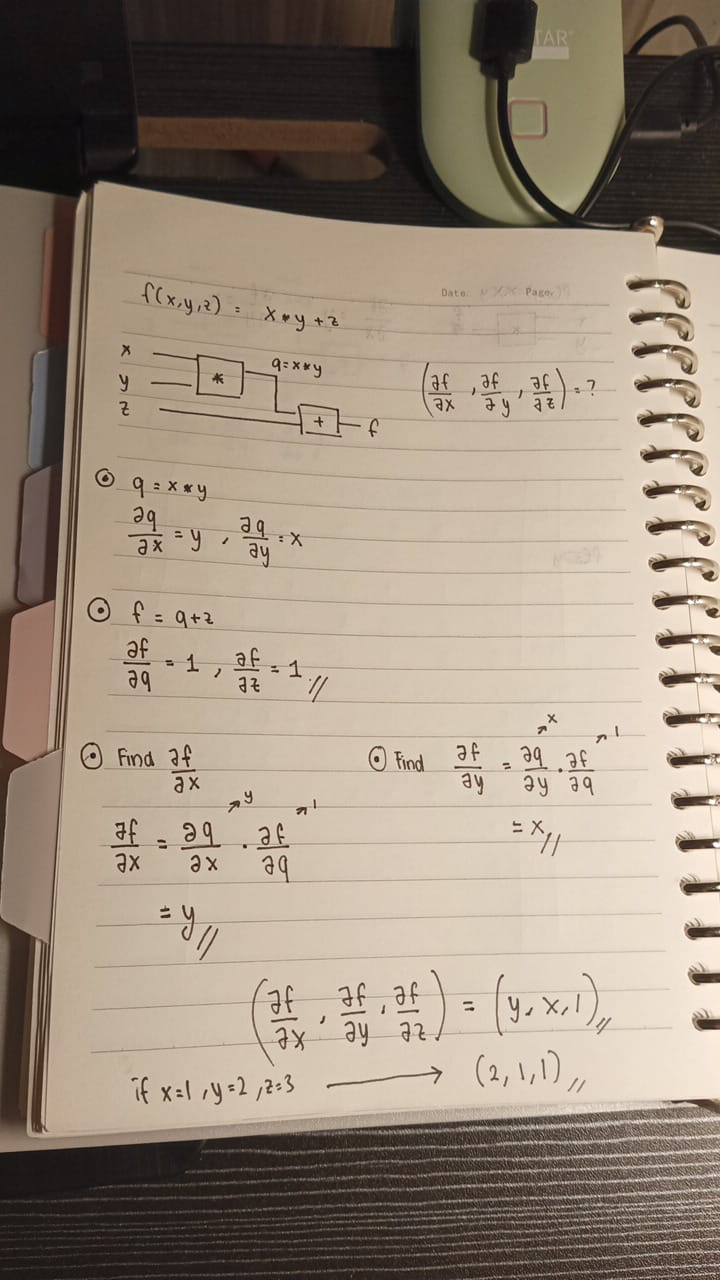 TAR
Date. Page.
f(x,y,z) = x*y+z
x
y
z
*
q=x*y
+
f
(∂f/∂x, ∂f/∂y, ∂f/∂z) = ?
⊙ q = x*y
∂q/∂x = y , ∂q/∂y = x
⊙ f = q+z
∂f/∂q = 1 , ∂f/∂z = 1 //
⊙ Find ∂f/∂x
∂f/∂x = ∂q/∂x ↗y · ∂f/∂q ↗1
= y //
⊙ Find ∂f/∂y = ∂q/∂y ↗x · ∂f/∂q ↗1
= x //
(∂f/∂x, ∂f/∂y, ∂f/∂z) = (y, x, 1) //
if x=1, y=2, z=3 ⟶ (2, 1, 1) //